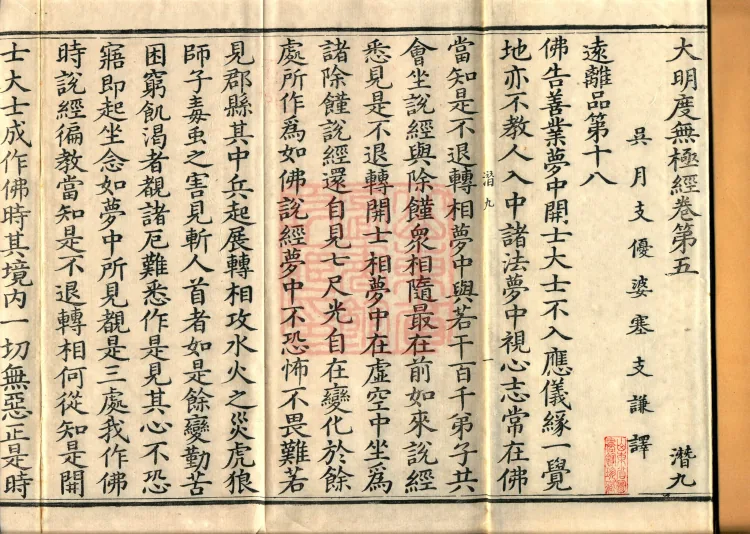 大明度無極經卷第五 潛九
吳月支優婆塞支謙譯
遠離品第十八
佛告善業夢中闓士大士不入應儀緣一覺
地亦不教人入中諸法夢中視心志常在佛
潛九 一
當知是不退轉相夢中與若干百千弟子共
會坐說經與除饉衆相隨最在前如來說經
悉見是不退轉闓士相夢中在虛空中坐爲
諸除饉說經還自見七尺光自在變化於餘
處所作爲如佛說經夢中不恐怖不畏難若
見郡縣其中兵起展轉相攻水火之災虎狼
師子毒虫之害見斬人首者如是餘變勤苦
困窮飢渴者覩諸厄難悉作是見其心不恐
寤即起坐念如夢中所見覩是三處我作佛
時說經徧教當知是不退轉相何從知是闓
士大士成作佛時其境內一切無惡正是時